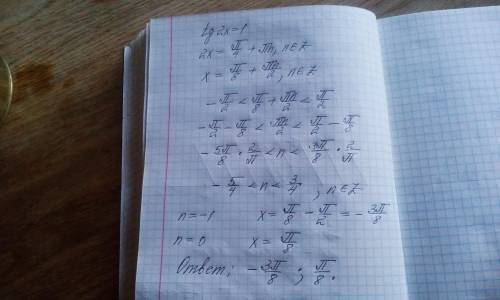 tg 2x = 1
2x = π/4 + πn, n∈Z
x = π/8 + πn/2, n∈Z
-π/2 < π/8 + πn/2 < π/2
-π/2 - π/8 < πn/2 < π/2 - π/8
-5π/8 · 2/π < n < 3π/8 · 2/π
-5/4 < n < 3/4, n∈Z
n = -1 x = π/8 - π/2 = -3π/8
n = 0 x = π/8
Ответ: -3π/8; π/8.